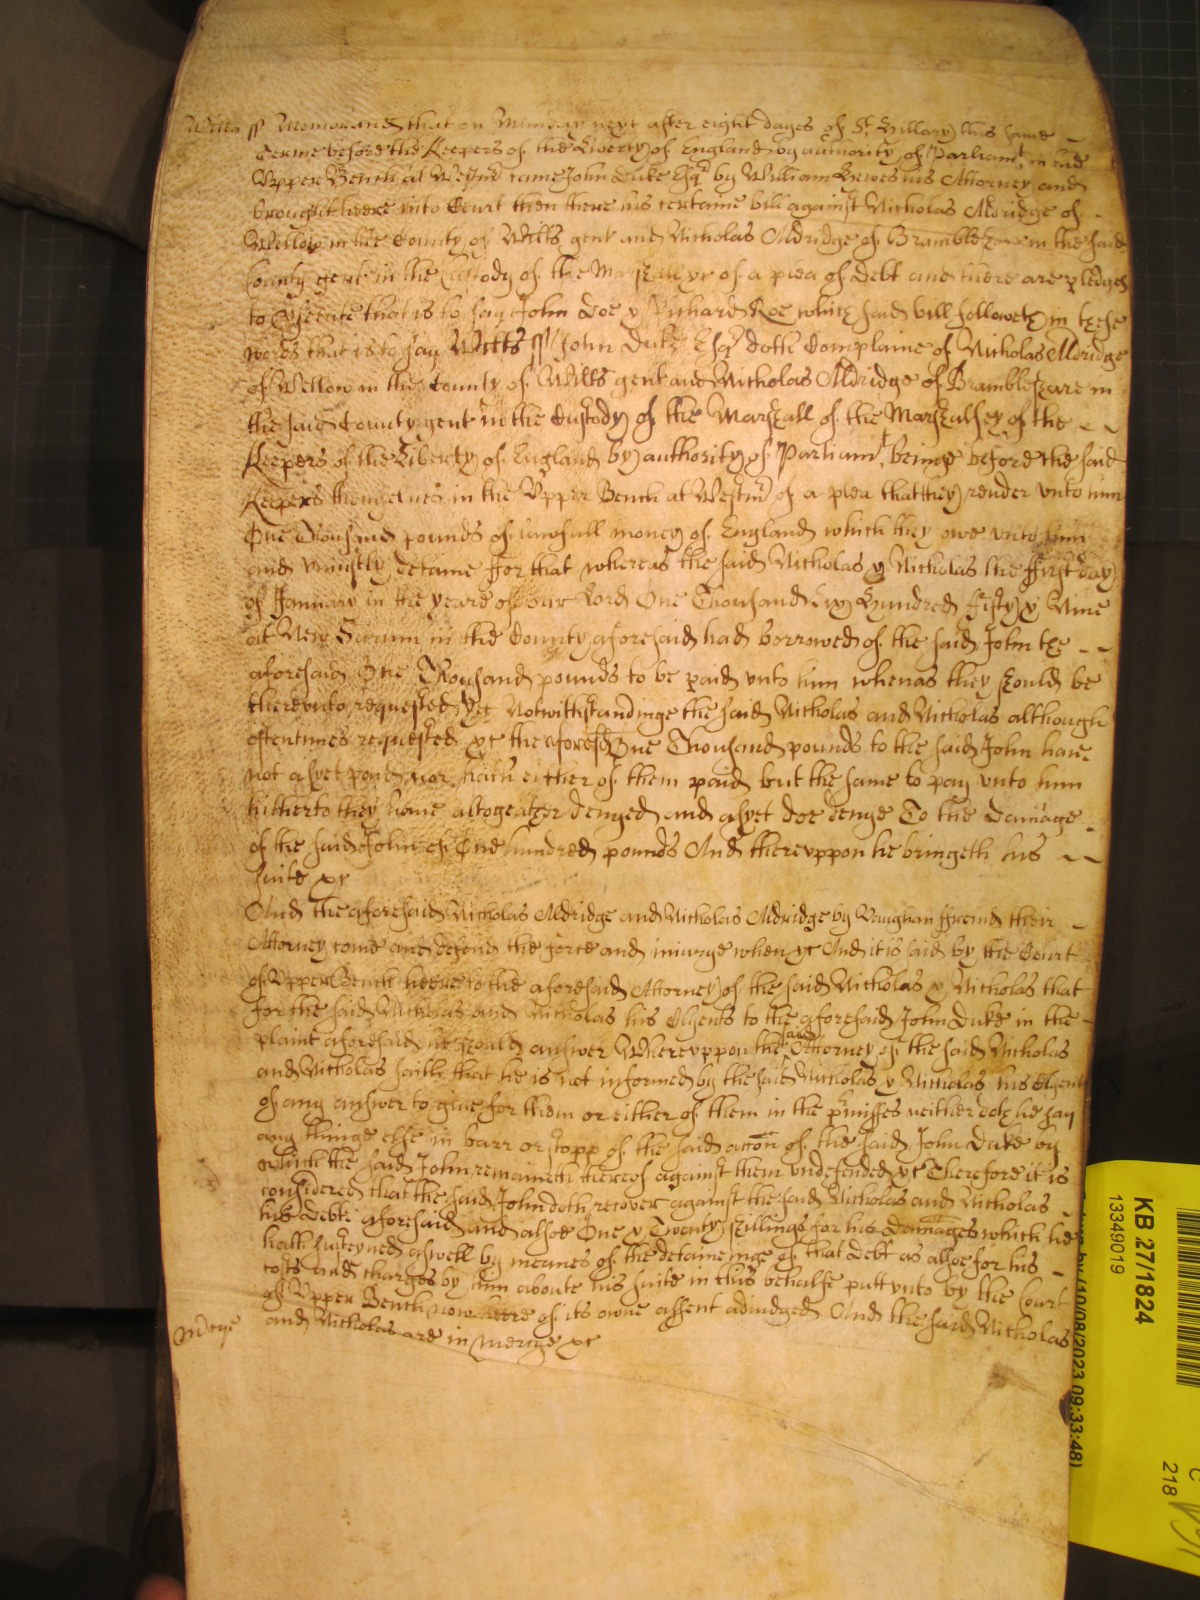 Wilts ss Memorand that on Munday next after eight dayes of St Hillary this same
terme before the Keepers of the Liberty of England by authority of Parliamt in the
Upper Bench at Westmr came John Duke Esqr by William his Attorney and
brought heere into Court then there his certaine bill against Nicholas Aldridge of
Wellow in the County of Wilts gent and Nicholas Aldridge of Brambleshare in the said
County gent in the custody of the Marshall &c of a plea of debt and there are pledges
to Prosecute that is to say John Doe & Richard Roe which said bill followeth in these
words that is to say Wilts ss John Duke Esqr doth Complaine of Nicholas Aldridge
of Wellow in the County of Wilts gent and Nicholas Aldridge of Brambleshare in
the said County gent in the Custody of the Marshall of the Marshalsey of the
Keepers of the Liberty of England by authority of Parliamt beinge before the said
Keepers themselves in the Upper Bench at Westmr of a plea that they render unto him
One Thousand pounds of lawfull money of England which they owe unto him
and uniustly detaine ffor that whereas the said Nicholas & Nicholas the ffirst day
of January in the yeare of our Lord One Thousand Six Hundred fifty & Nine
at New Sarum in the County aforesaid had borrowed of the said John the
aforesaid One Thousand pounds to be paid unto him whenas they should be
thereunto requested Yet Notwithstandinge the said Nicholas and Nicholas although
oftentimes requested &c the aforesd One Thousand pounds to the said John have
not as yet paid nor hath either of them paid but the same to pay unto him
hitherto they have altogeather denyed and as yet doe denye To the Damage
of the said John of One hundred pounds And thereuppon he bringeth his
suite &c
And the aforesaid Nicholas Aldridge and Nicholas Aldridge by Vaughan their
Attorney come and defend the force and iniurye when &c And it is said by the Court
of Upper Bench heere to the aforesaid Attorney of the said Nicholas & Nicholas that
for the said Nicholas and Nicholas his Clyents to the aforesaid John Duke in the
plaint aforesaid he should answer Whereuppon the said Attorney of the said Nicholas
and Nicholas saith that he is not informed by the said Nicholas & Nicholas his Clyents
of any answer to give for them or either of them in the pmisses neither doth he say
any thinge else in barr or stopp of the said accon of the said John Duke by
which the said John remaineth thereof against them undefended &c Therefore it is
considered that the said John doth recover against the said Nicholas and Nicholas
his Debt aforesaid and alsoe One & Twenty shillings for his Damages which he
hath susteyned aswell by meanes of the detaineinge of that Debt as alsoe for his
costs and charges by him aboute his suite in this behalfe putt unto by the Court
of Upper Bench now heere of its owne assent adiudged And the said Nicholas
Mercye and Nicholas are in mercye &c
KB 27/1824
13349019
(10/08/2023 09:33:48)
218